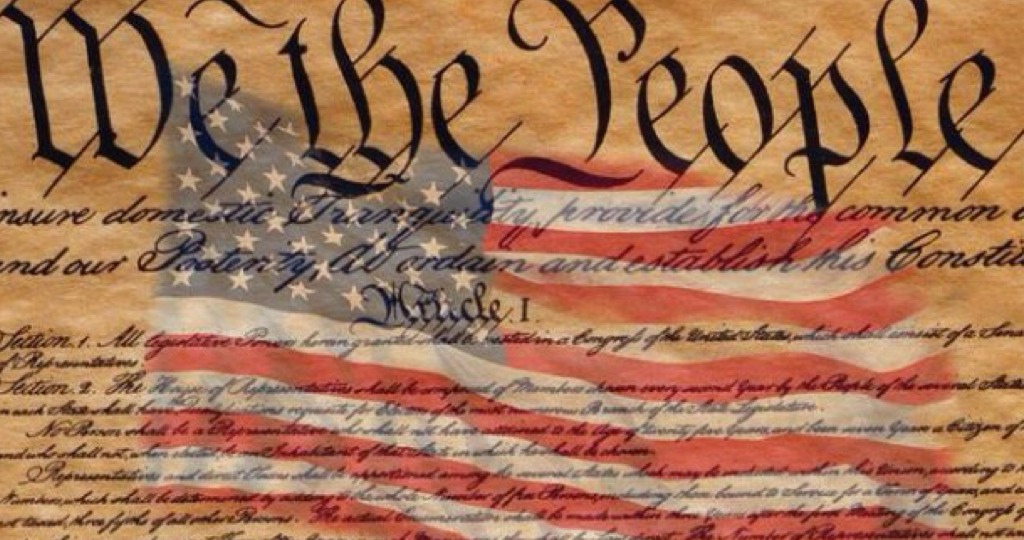 We the People
insure domestic Tranquility, provide for the common
and our Posterity, do ordain and establish this Constitu
Article. I.
Section. 1. All legislative Powers herein granted shall be vested in a Congress of the United States, which shall consist of a Sena
of Representatives
Section. 2. The House of Representatives shall be composed of Members chosen every second Year by the People of the several States
in each State shall have the Qualifications requisite for Electors of the most numerous Branch of the State Legislature.
No Person shall be a Representative who shall not have attained to the Age of twenty five Years, and been seven Years a Citizen of
and who shall not, when elected, be an Inhabitant of that State in which he shall be chosen.
Representatives and direct Taxes shall be apportioned among the several States which may be included within this Union, according to
Numbers, which shall be determined by adding to the whole Number of free Persons, including those bound to Service for a Term of Years, and
not taxed, three fifths of all other Persons. The actual Enumeration shall be made within three Years after the first Meeting of the Congress of
The Number of Representatives shall not